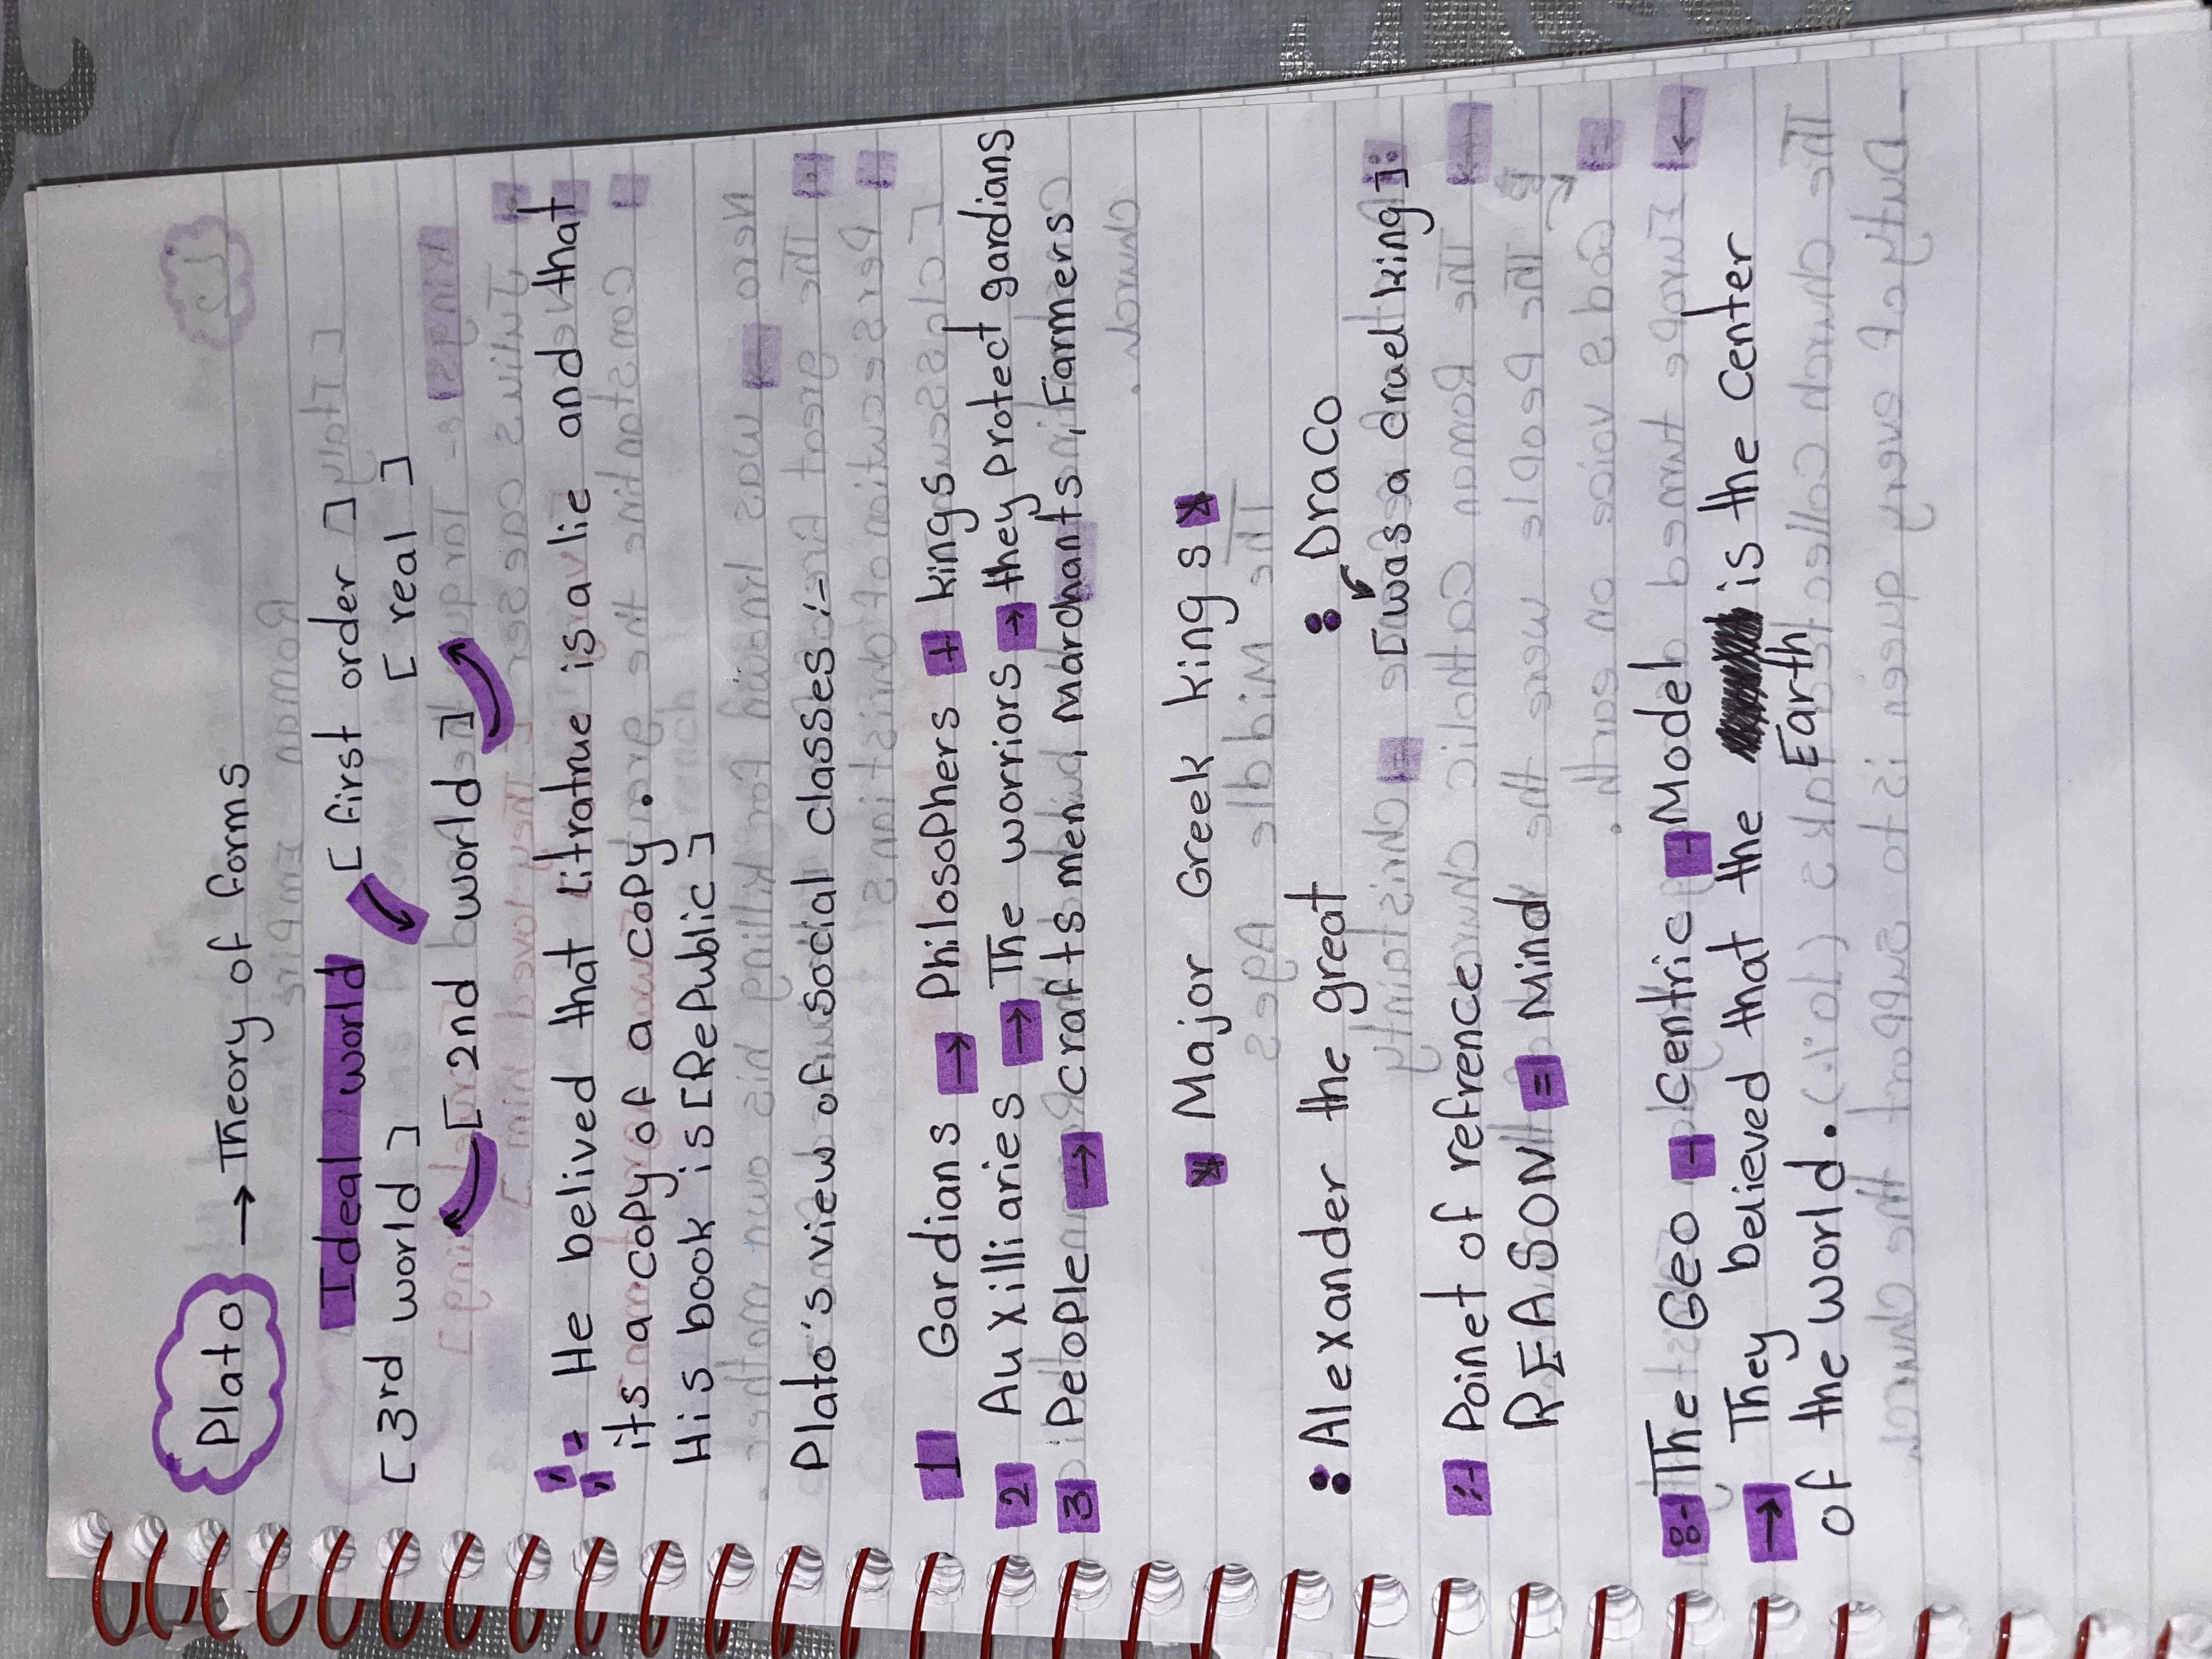 Plato → Theory of forms
Ideal world [ first order ]
[ 3rd world ] [ real ]
[ 2nd world ]
:- He belived that litratrue is a lie and that
its a copy of a copy .
His book is [RePublic]
Plato's view of social classes :-
1 Gardians → Philosophers + kings
2 Auxilliaries → The worriors → they Protect gardians
3 People → crafts men , Marchants , Farmers
* Major Greek kings *
: Alexander the great : Draco
[was a cruel king]
:- Poinet of refrence
REASON = Mind
8- The Geo - Centric - Model
→ They believed that the is the center
Earth
of the world .